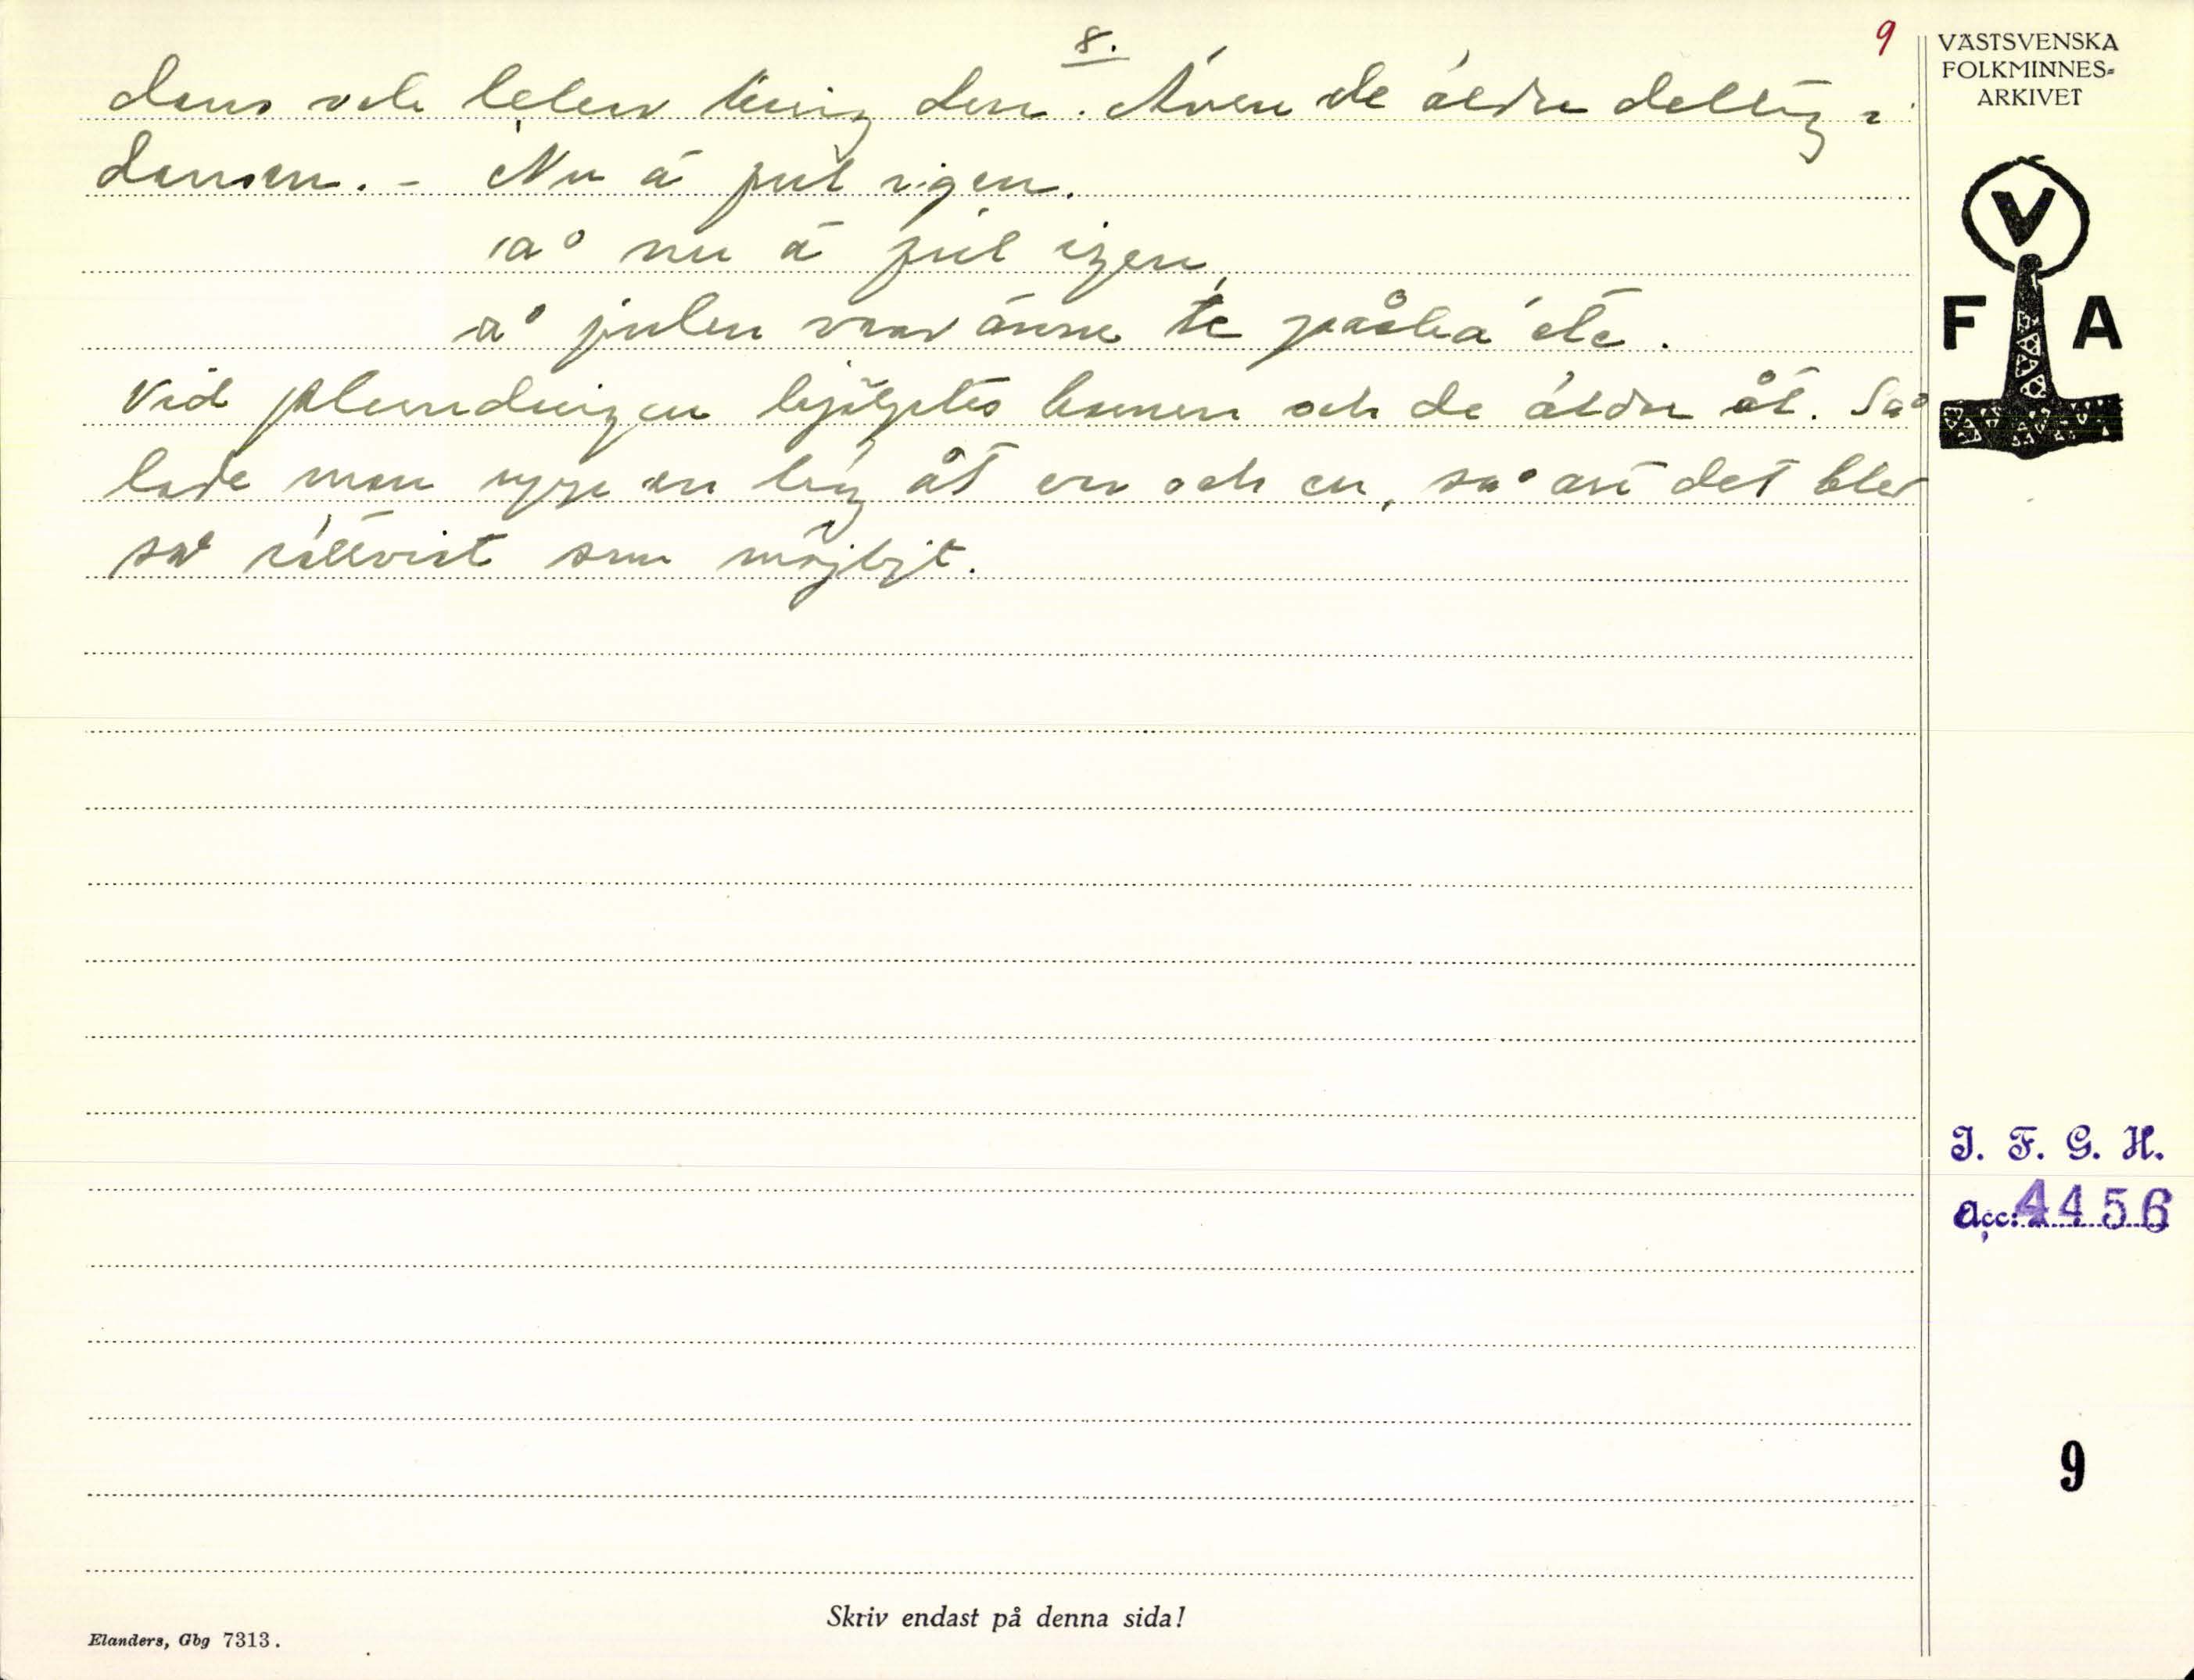 8.
9
dans och lekar kring den. Även de äldre deltog i
dansen. - Nu ä jul igen.
å nu ä jul igen,
å julen varar änne te påska' éte.
Vid plundringen hjälptes barnen och de äldre åt. Så
lade man upp en hög åt en och en, så att det blev
så rättvist som möjligt.
VÄSTSVENSKA
FOLKMINNES-
ARKIVET
V
F A
I. F. G. H.
Acc: 4456
9
Skriv endast på denna sida!
Elanders, Gbg 7313.